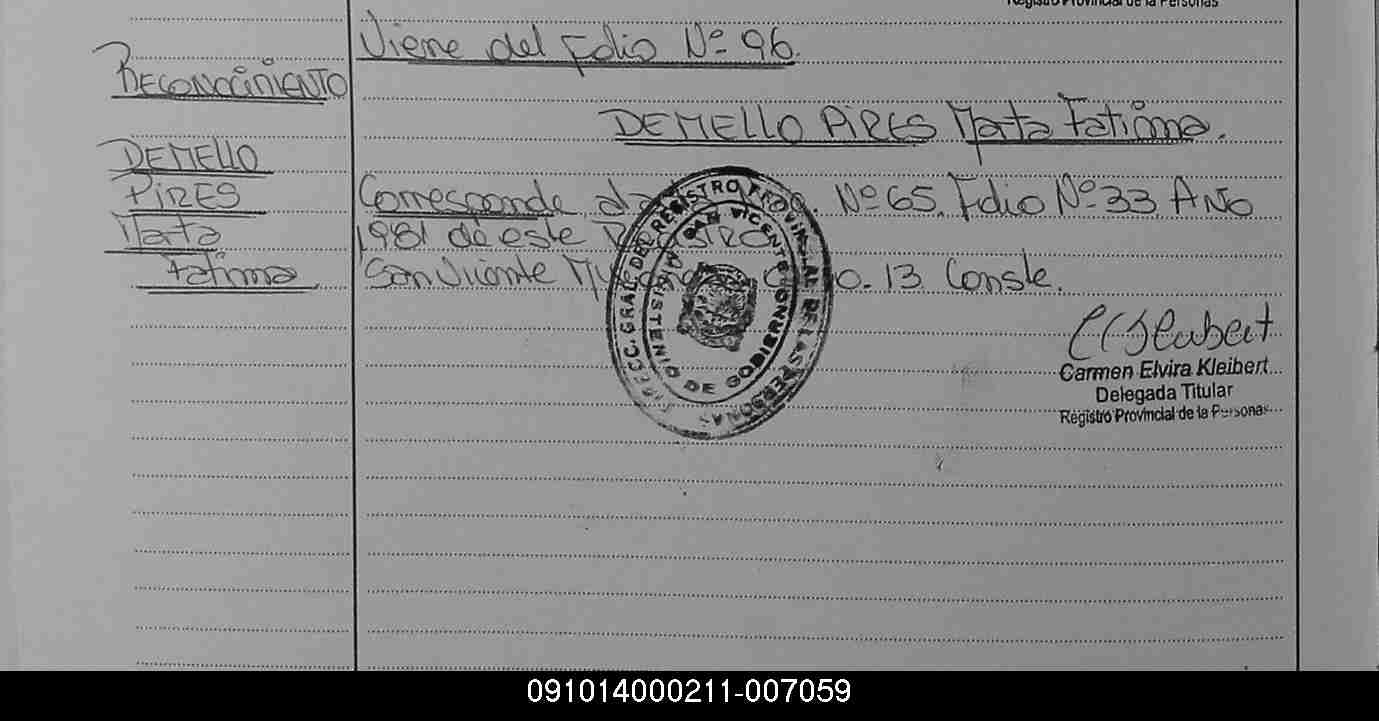 Registro Provincial de la Personas
Viene del Folio Nº 96.
RECONOCIMIENTO
DEMELLO PIRES Marta Fatima.
DEMELLO
PIRES
Marta
Fatima
Corresponde al Nº 65. Folio Nº 33 AÑO
1981 de este
San Vicente 13 Conste.
DIRECC. GRAL. DEL REGISTRO PROVINCIAL DE LAS PERSONAS
MINISTERIO DE GOBIERNO
SAN VICENTE
Carmen Elvira Kleibert
Delegada Titular
Registro Provincial de la Personas
091014000211-007059